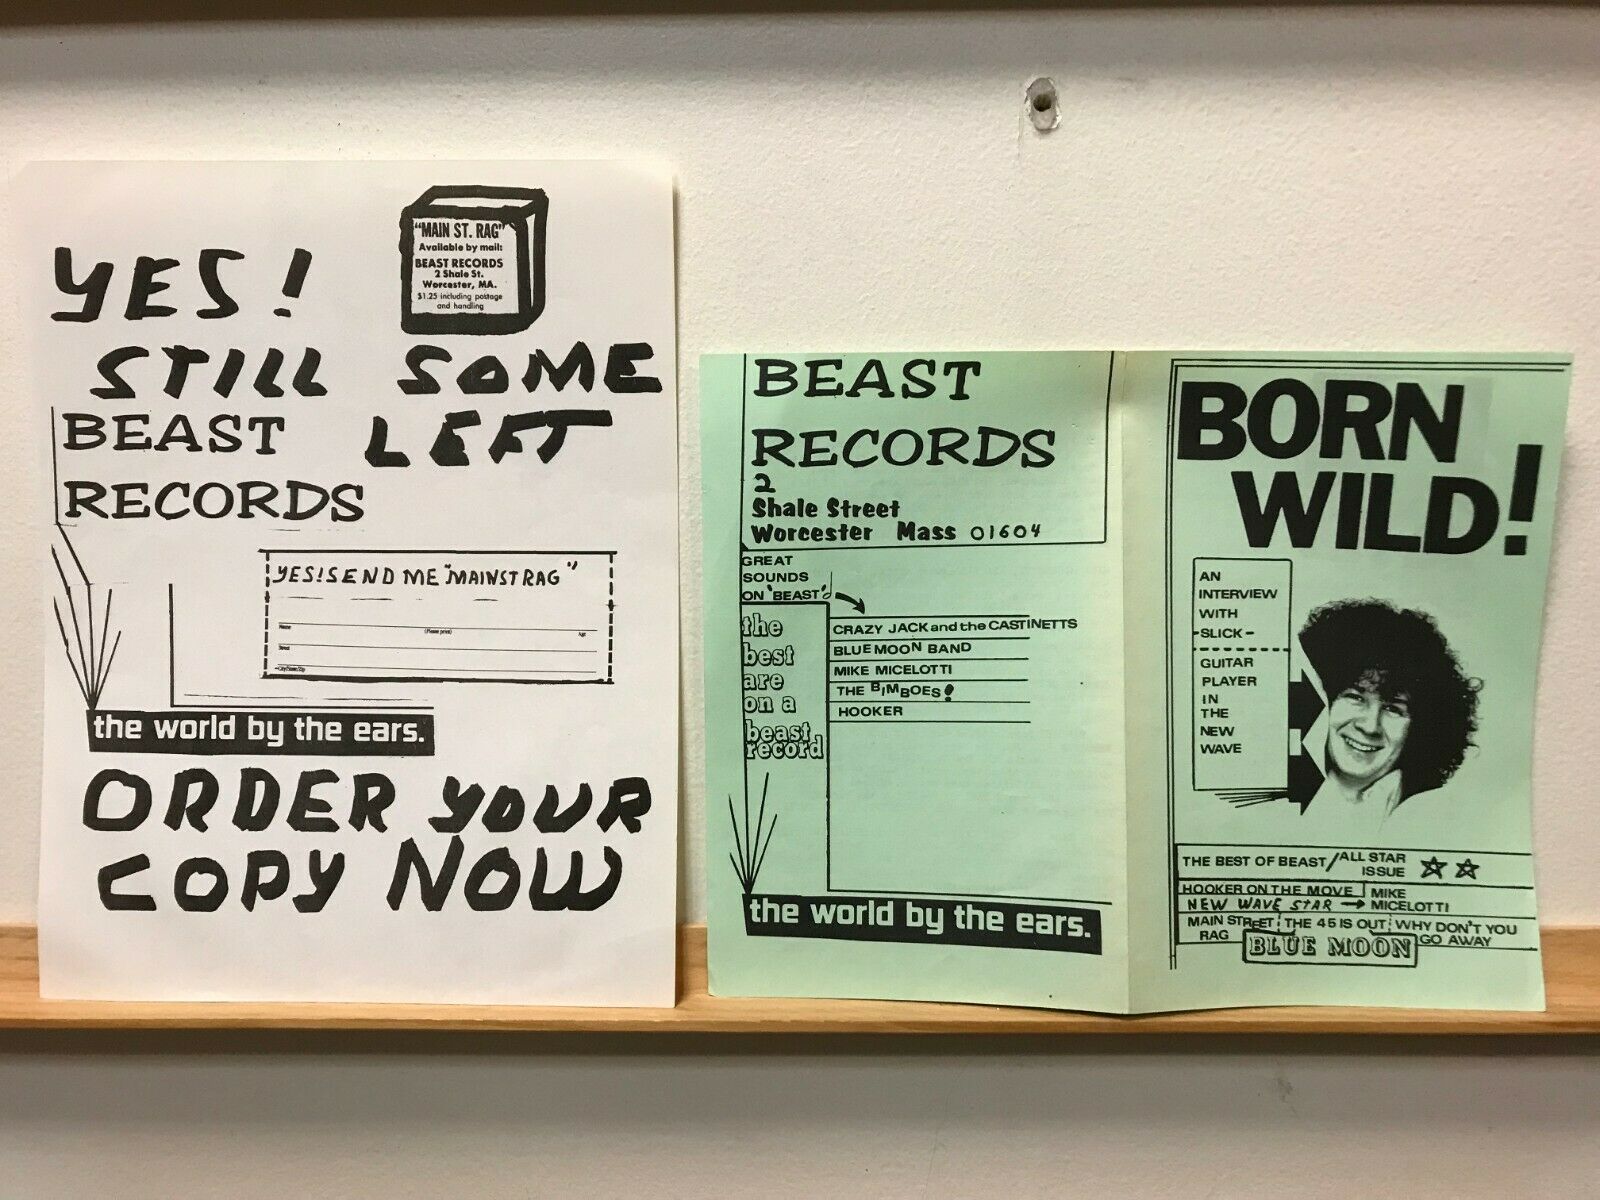 YES!
"MAIN ST. RAG"
Available by mail:
BEAST RECORDS
2 Shale St.
Worcester, MA.
$1.25 including postage
and handling
STILL SOME
LEFT
BEAST
RECORDS
YES! SEND ME "MAINST RAG"
Name (Please print) Age
Street
City/State/Zip
the world by the ears.
ORDER YOUR
COPY NOW
BEAST
RECORDS
2
Shale Street
Worcester Mass 01604
GREAT
SOUNDS
ON 'BEAST'
the
best
are
on a
beast
record
CRAZY JACK and the CASTINETTS
BLUE MOON BAND
MIKE MICELOTTI
THE BIMBOES!
HOOKER
the world by the ears.
BORN
WILD!
AN
INTERVIEW
WITH
-SLICK-
GUITAR
PLAYER
IN
THE
NEW
WAVE
THE BEST OF BEAST/ALL STAR
ISSUE
HOOKER ON THE MOVE
NEW WAVE STAR → MIKE
MICELOTTI
MAIN STREET
RAG
THE 45 IS OUT
WHY DON'T YOU
GO AWAY
BLUE MOON